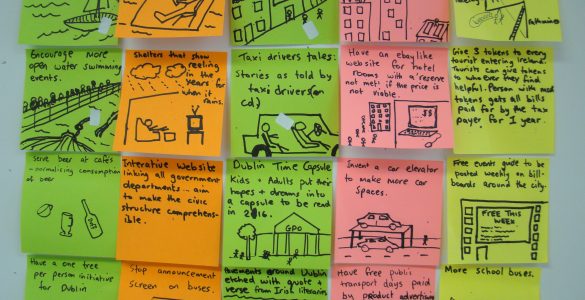 Encourage more
open water swimming
events.
Shelters that show
reeling
in the
years for
when it
rains.
Taxi drivers tales:
Stories as told by
taxi drivers (on
cd)
Have an ebay like
website for hotel
rooms with a 'reserve
not met' if the price is
not viable.
$$
Give 3 tokens to every
tourist entering Ireland.
tourists can give tokens
to who ever they find
helpful. Person with most
tokens gets all bills
paid for by the tax
payer for 1 year.
Serve beer at cafés
- normalising consumption
of beer
Interative Website
linking all government
departments ... aim
to make the civic
structure comprehens-
ible.
Dublin Time Capsule
Kids + Adults put their
hopes + dreams into
a capsule to be read
in 2016.
GPO
Invent a car elevator
to make more car
spaces.
Free events guide to be
posted weekly on bill-
boards around the city.
FREE THIS
WEEK
Have a one tree
per person initiative
for Dublin
Stop announcement
screen on buses.
Pavements around Dublin
etched with quote +
verse from Irish literaries
Have free public
transport days paid
by product advertising
More school buses.